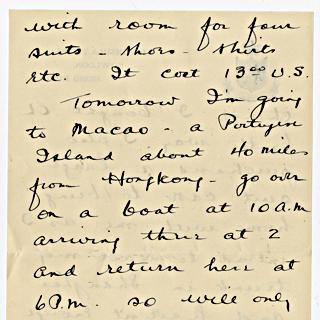 with room for four
suits - shoes - shirts
etc. It cost 13.00 U.S.
Tomorrow I'm going
to Macao - a Portugese
Island about 40 miles
from Hongkong - go over
on a boat at 10 A.M
arriving there at 2
and return here at
6 P.M. so will only